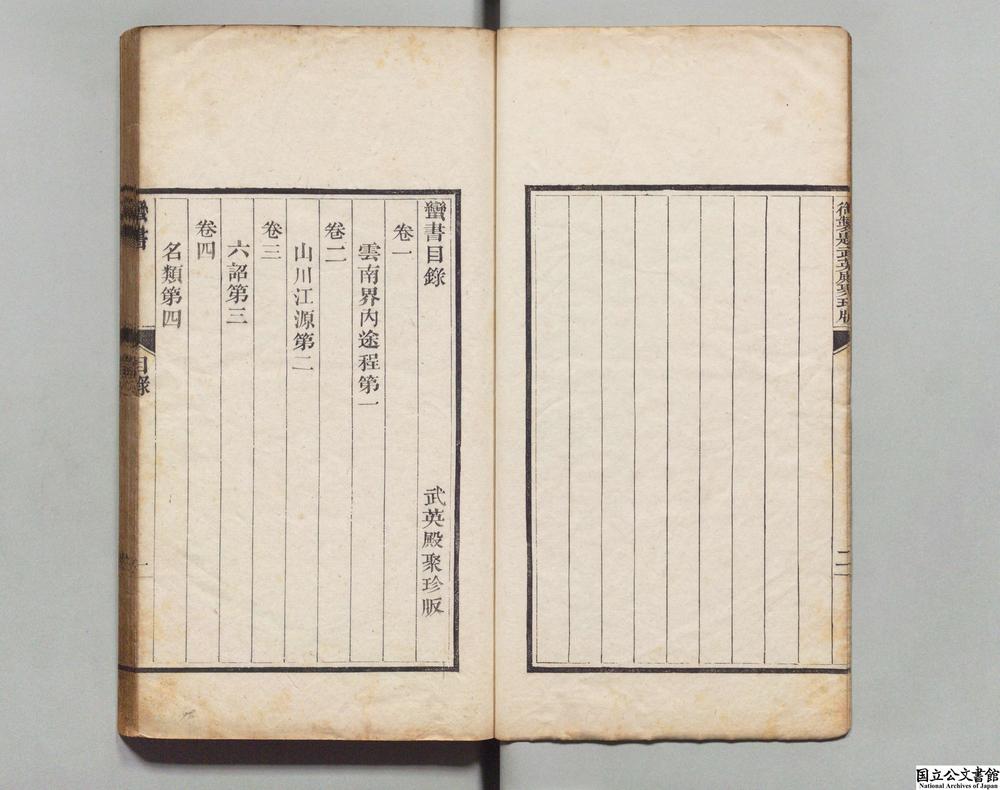 御製題武英殿聚珍版
二
蠻書目錄
武英殿聚珍版
卷一
雲南界內途程第一
卷二
山川江源第二
卷三
六詔第三
卷四
名類第四
蠻書
目錄
一
国立公文書館
National Archives of Japan